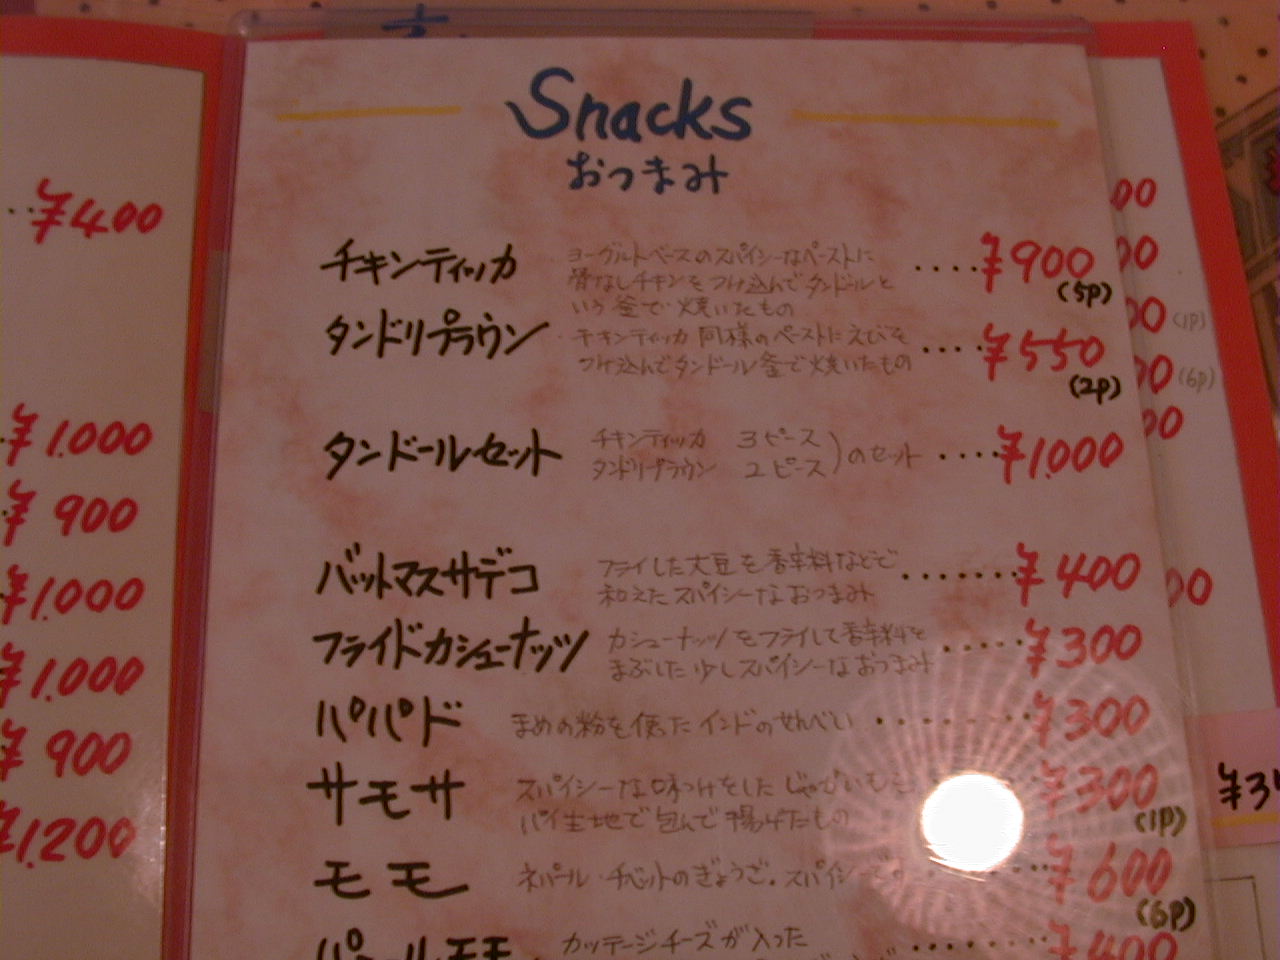 Snacks
おつまみ
チキンティッカ ヨーグルトベースのスパイシーなペーストに ････¥900
骨なしチキンをつけ込んでタンドールと (5p)
いう釜で焼いたもの
タンドリプラウン チキンティッカ同様のペーストにえびを ････¥550
つけ込んでタンドール釜で焼いたもの (2p)
タンドールセット チキンティッカ 3ピース ) のセット ････¥1.000
タンドリプラウン 2ピース
バットマスサデコ フライした大豆を香辛料などで ･･･････¥400
和えたスパイシーなおつまみ
フライドカシューナッツ カシューナッツをフライして香辛料を ･････¥300
まぶした少しスパイシーなおつまみ
パパド まめの粉を使ったインドのせんべい ････････¥300
サモサ スパイシーな味つけをしたじゃがいもを ¥300
パイ生地で包んで揚げたもの (1p)
モモ ネパール・チベットのぎょうざ。スパイシー ¥600
(6p)
パニールモモ カッテージチーズが入った ¥400
¥400
¥1.000
¥900
¥1.000
¥1.000
¥900
¥1.200
00
00
00 (1p)
00 (6p)
00
00
¥3